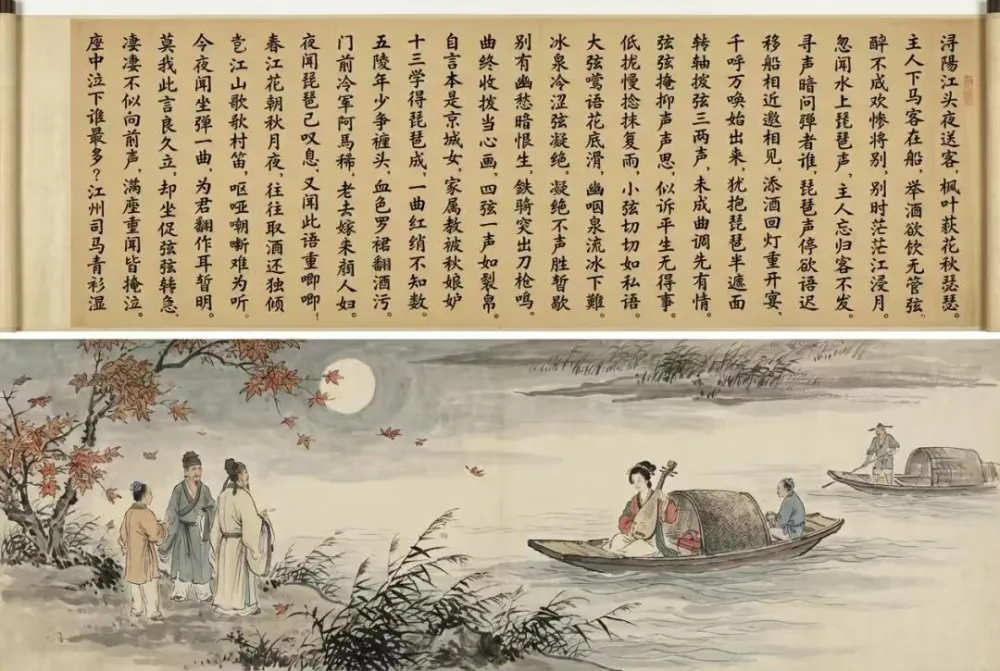 浔陽江头夜送客，枫叶荻花秋瑟瑟。
主人下马客在船，举酒欲饮无管弦，
醉不成欢惨将别，别时茫茫江浸月。
忽闻水上琵琶声，主人忘归客不发。
寻声暗问弹者谁，琵琶声停欲语迟
移船相近邀相见，添酒回灯重开宴、
千呼万唤始出来，犹抱琵琶半遮面
转轴拔弦三两声，未成曲调先有情。
弦弦掩抑声声思，似诉平生无得事。
低扰慢捻抹复雨，小弦切切如私语。
大弦莺语花底滑，幽咽泉流冰下難。
冰泉冷涩弦凝绝，凝绝不声胜暂歇
别有幽愁暗恨生，鉄骑突出刀枪鸣。
曲终收拨当心画，四弦一声如裂帛。
自言本是京城女，家属教被秋娘妒
十三学得琵琶成，一曲红绡不知数。
五陵年少争缠头，血色罗裙翻酒污。
门前冷军阿馬稀，老去嫁来颜人妇。
夜闻琵琶已叹息，又闻此语重唧唧
春江花朝秋月夜，往往取酒还独倾
岂江山歌歌村笛，呕哑嘲哳难为听。
今夜闻坐弹一曲，为君翻作耳暂明。
莫我此言良久立，却坐促弦弦转急
凄凄不似向前声，满座重闻皆掩泣
座中泣下谁最多？江州司马青衫湿